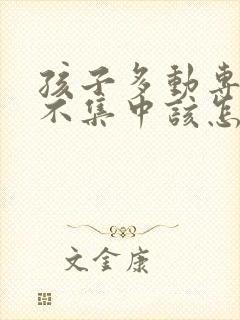 孩子多動專
不集中該怎
文金康